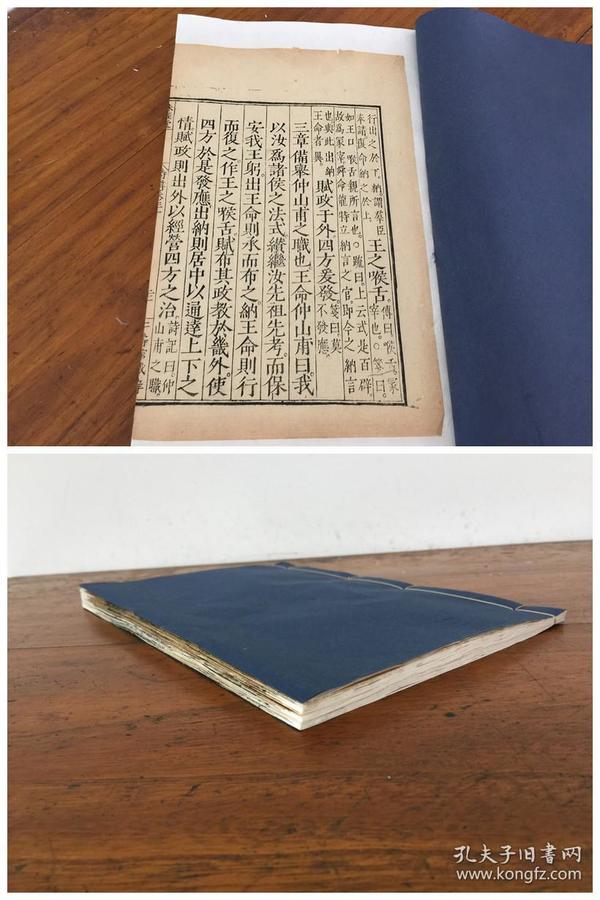 行出之於下納謂羣臣
奉請復命納之於上
王之喉舌
傳曰喉舌冢
宰也○箋曰
如王口喉舌親所言也○疏曰上云式是百辟
故爲冢宰舜命龍特立納言之官即今之納言
也與此出納
王命者異
賦政于外四方爰發
箋曰莫
不發應
三章備舉仲山甫之職也王命仲山甫曰我
以汝爲諸侯之法式纘繼汝先祖先考而保
安我王躬出王命則承而布之納王命則行
而復之作王之喉舌賦布其政教於畿外使
四方於是發應出納則居中以通達上下之
情賦政則出外以經營四方之治
詩記曰仲
山甫之職
孔夫子旧書网
www.kongfz.com